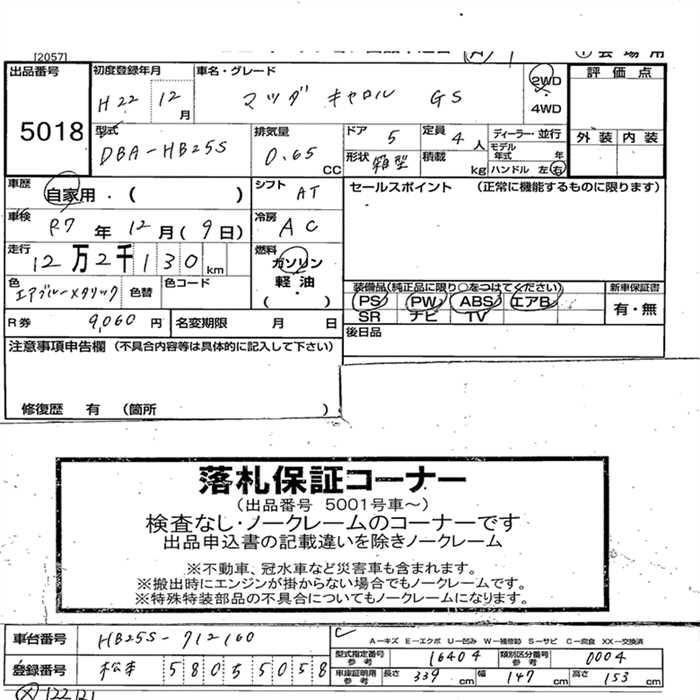 [2057]
出品番号 5018
初度登録年月 H22 12月
車名・グレード マツダ キャロル GS
2WD
4WD
評価点
外装 内装
型式 DBA-HB25S
排気量 0.65 CC
ドア 5
定員 4人
形状 箱型
積載 kg
ディーラー・並行
モデル年式 年
ハンドル 左 右
車歴 自家用・( )
シフト AT
セールスポイント (正常に機能するものに限ります)
車検 R7年12月(9日)
冷房 AC
走行 12万2千130km
燃料 ガソリン
軽油
( )
色 エアブルーメタリック
色替
色コード
装備品(純正品に限り○をつけてください)
PS PW ABS エアB
SR ナビ TV
新車保証書
有・無
R券 9,060円
名変期限 月 日
後日品
注意事項申告欄 (不具合内容等は具体的に記入して下さい)
修復歴 有 (箇所 )
落札保証コーナー
(出品番号 5001号車~)
検査なし・ノークレームのコーナーです
出品申込書の記載違いを除きノークレーム
※不動車、冠水車など災害車も含まれます。
※搬出時にエンジンが掛からない場合でもノークレームです。
※特殊特装部品の不具合についてもノークレームになります。
車台番号 HB25S-712160
A-キズ E-エクボ U-凹み W-補修跡 S-サビ C-腐食 XX-交換済
型式指定番号 参考 16404
類別区分番号 参考 0004
登録番号 松本 580 5 5058
車庫証明用 参考 長さ 339cm 幅 147cm 高さ 153cm
122121